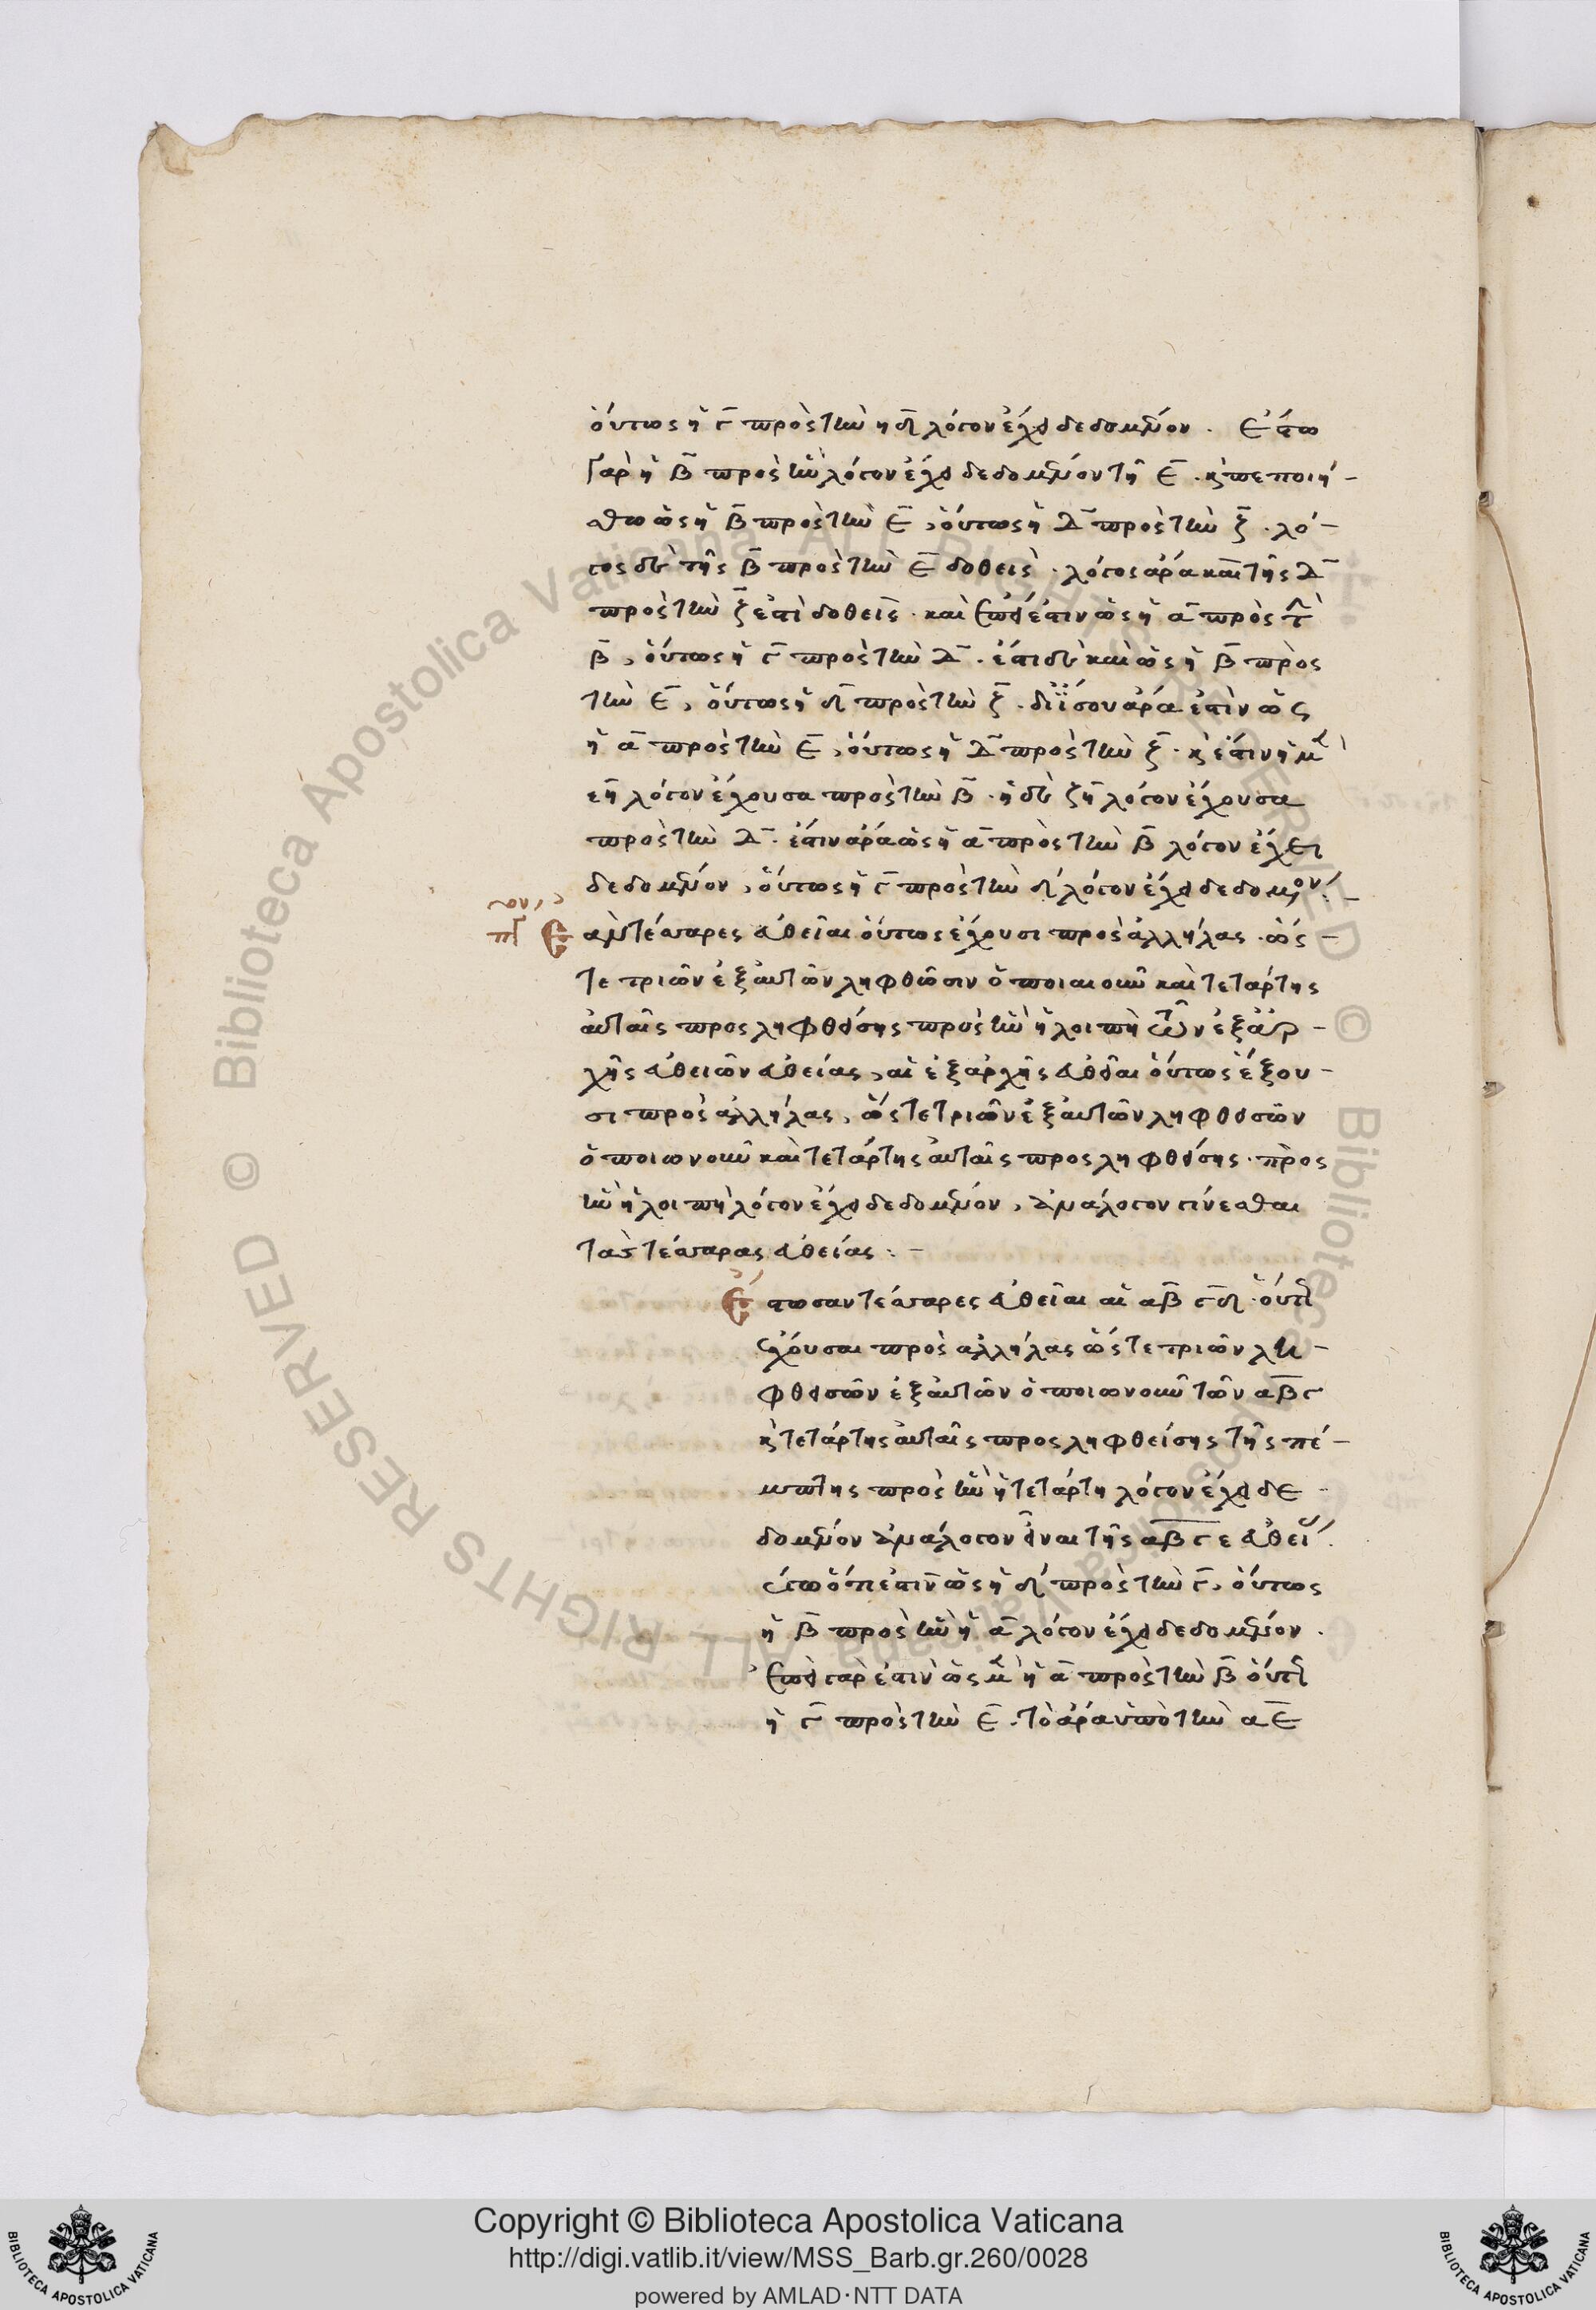 οὕτως ἡ γ̄ πρὸς τὴν ἡ δ̄ λόγον ἔχει δεδομένον. ἔστω
γὰρ ἡ β̄ πρὸς ἣν λόγον ἔχει δεδομένον τῇ ε̄. κ πεποιή-
σθω ὡς ἡ β̄ πρὸς τὴν ε̄, οὕτως ἡ Δ̄ πρὸς τὴν ζ̄. λό-
γος δὲ τῆς β̄ πρὸς τὴν ε̄ δοθεὶς. λόγος ἄρα καὶ τῆς Δ̄
πρὸς τὴν ζ̄ ἐστὶ δοθεὶς. καὶ ἐπεί ἐστιν ὡς ἡ ᾱ πρὸς τ̂
β̄, οὕτως ἡ γ̄ πρὸς τὴν Δ̄. ἔστι δὲ καὶ ὡς ἡ β̄ πρὸς
τὴν ε̄, οὕτως ἡ δ̄ πρὸς τὴν ζ̄. διΐσου ἄρα ἐστὶν ὡς
ἡ ᾱ πρὸς τὴν ε̄, οὕτως ἡ πρὸς τὴν ζ̄. κ ἐστιν ἡ μ
ε̄ ἡ λόγον ἔχουσα πρὸς τὴν β̄. ἡ δὲ ζ̄ ἡ λόγον ἔχουσα
πρὸς τὴν Δ̄. ἔστιν ἄρα ὡς ἡ ᾱ πρὸς τὴν β̄ λόγον ἔχει
δεδομένον, οὕτως ἡ γ̄ πρὸς τὴν δ̄ λόγον ἔχει δεδομον:-
Ἐὰν τέσσαρες εὐθεῖαι οὕτως ἔχουσι πρὸς ἀλλήλας. ὡς-
τε τριῶν ἐξ αὐτῶν ληφθῶσιν ὁποιαιοῦν καὶ τετάρτης
αὐταῖς προσληφθείσης πρὸς ἣν ἡ λοιπὴ τῶν ἐξ ἀρ-
χῆς εὐθειῶν εὐθείας, αἱ ἐξ ἀρχῆς εὐθεῖαι οὕτως ἕξου-
σι πρὸς ἀλλήλας, ὥστε τριῶν ἐξ αὐτῶν ληφθεισῶν
ὁποιωνοῦν καὶ τετάρτης αὐταῖς προσληφθείσης. πρὸς
ἣν ἡ λοιπὴ λόγον ἔχει δεδομένον, ἀνάλογον γίνεσθαι
τὰς τέσσαρας εὐθείας:-
Ἔστωσαν τέσσαρες εὐθεῖαι αἱ αβ̄ γδ̄. οὕτ
ἔχουσαι πρὸς ἀλλήλας ὥστε τριῶν λη-
φθεισῶν ἐξ αὐτῶν ὁποιωνοῦν τῶν αβ̄γ
κ τετάρτης αὐταῖς προσληφθείσης τῆς πέ-
μπτης πρὸς ἣν ἡ τετάρτη λόγον ἔχει δε-
δομένον ἀνάλογον εἶναι τῆς αβ̄γε εὐθεί.
λέγω ὅτι ἐστιν ὡς ἡ δ̄ πρὸς τὴν γ̄, οὕτως
ἡ β̄ πρὸς ἣν ἡ ᾱ λόγον ἔχει δεδομένον.
ἐπεὶ γάρ ἐστιν ὡς μ ἡ ᾱ πρὸς τὴν β̄ οὕτ
ἡ γ̄ πρὸς τὴν ε̄. τὸ ἄρα ὑπὸ τὴν αε̄